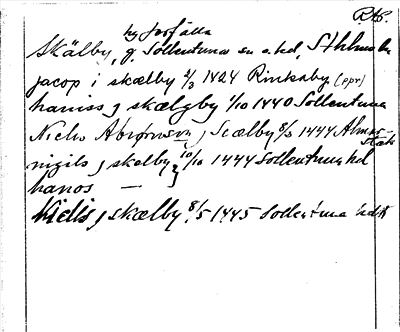 R.A.
ny Järfälla
Skälby, g. Sollentuna sn o. hd, Sthlms län
jacop i skælby 2/3 1424 Rinkaby (ppr)
haniss j skælgby 1/10 1440 Sollentuna
Niclis Abiørnsson j Scælby 8/3 1444 Almarstäk
nigils j skelby 10/10 1444 Sollentuna hd
hanos —
kiells j skælby 8/5 1445 Sollentuna hdst